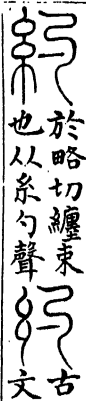 約
於略切纏束
也从糸勺聲
約
古
文